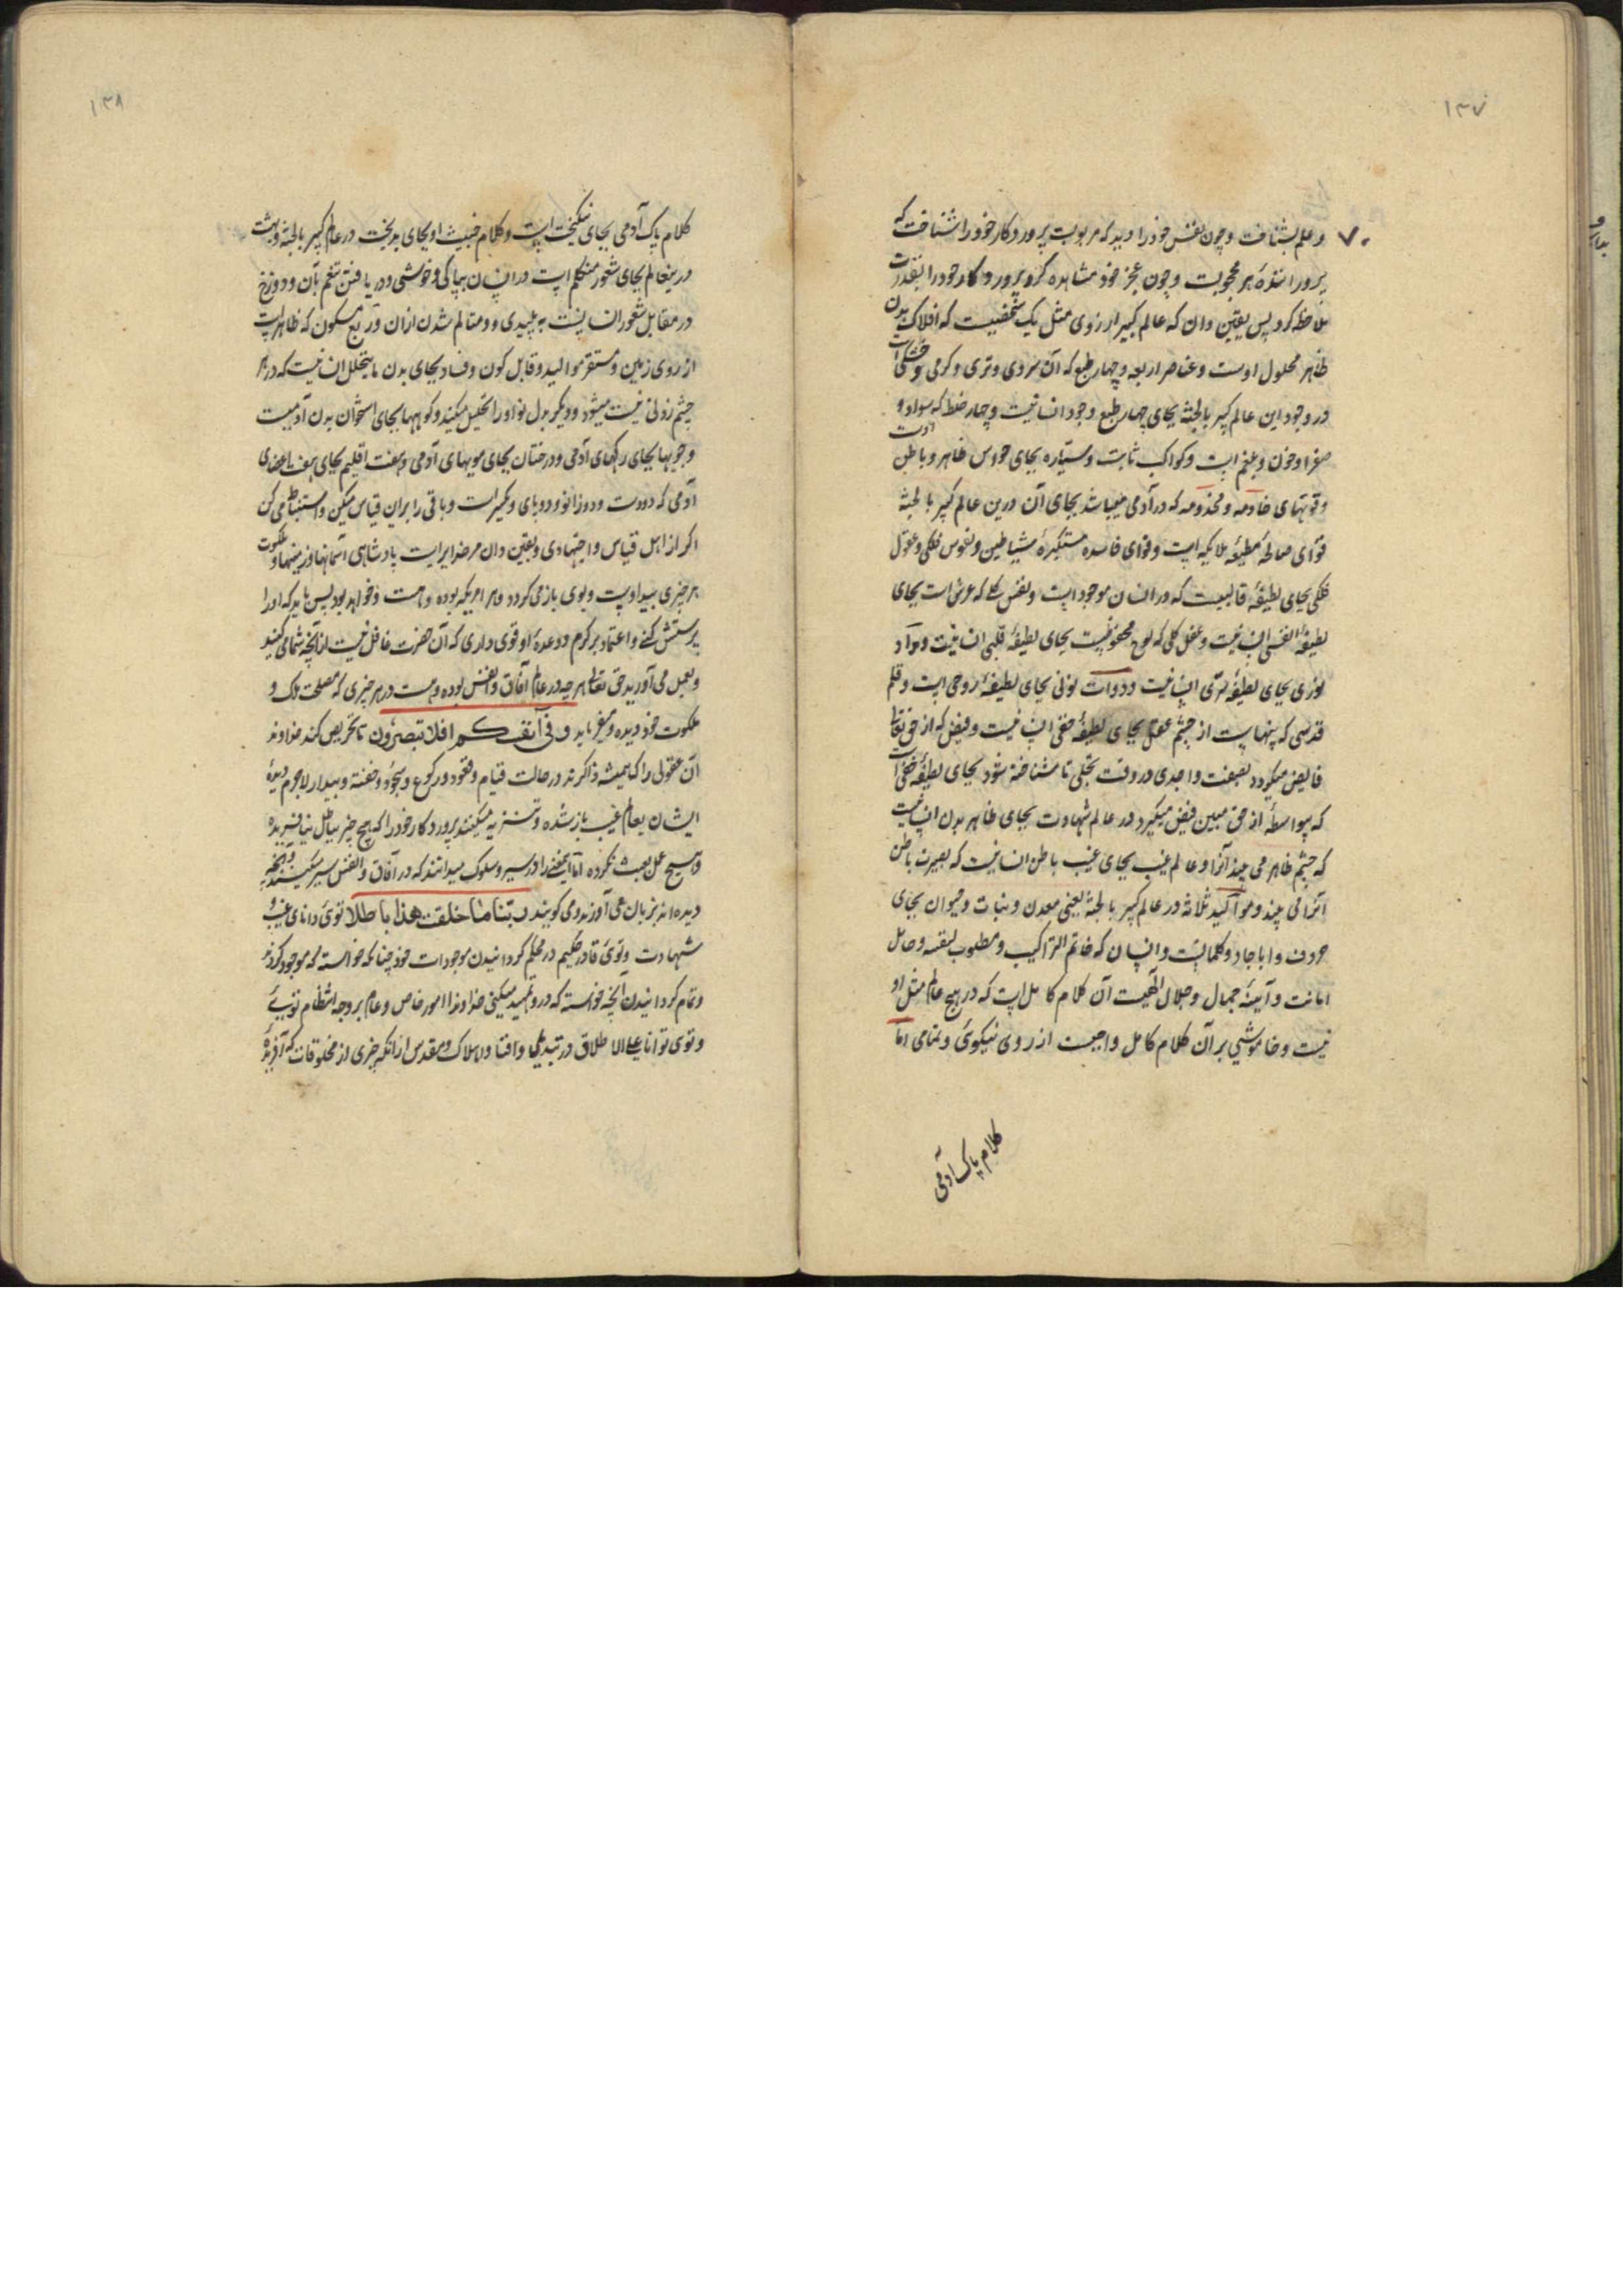 ۱۳۷
۷۰
و علم بشناخت و چون نفس خود را دید که مربوبست پروردگار خود را شناخت که
پروراننده هر محبوبست و چون عجز خود مشاهده کرد پروردگار خود را بقدرت
ملاحظه کرد پس یقین دان که عالم کبیر از روی مثل یک شخصیست که افلاک بدن
ظاهر محلول اوست و عناصر اربعه و چهار طبع که آن سردی و تری و گرمی و خشکی است
در وجود این عالم کبیر بالجثه بجای چهار طبع وجود انسانیست و چهار خلط که سودا و
صفرا و خون و بلغم است و کواکب ثابت و سیاره بجای حواس ظاهر و باطن اوست
و قوتهای خادمه و مخدومه که در آدمی میباشد بجای آن درین عالم کبیر بالجثه
قوای صالحهٔ مطیعه ملایکه است و قوای فاسده مستکبرهٔ شیاطین و نفوس فلکی و عقول
فلکی بجای لطیفهٔ قالبیست که در انسان موجود است و نفس کلی که عرش است بجای
لطیفهٔ نفسی انسانیست و عقل کلی که لوح محفوظیست بجای لطیفهٔ قلبی انسانیست و مداد
نوری بجای لطیفهٔ سرّی انسانیست و دوات نونی بجای لطیفهٔ روحی است و قلم
قدسی که پنهانست از چشم عقل بجای لطیفهٔ خفی انسانیست و فیض که از حق تعالی
فایض میگردد بصفت واحدی در وقت تجلی تا شناخته شود بجای لطیفهٔ حقی است
که بیواسطه از حق مبین فیض میگیرد و عالم شهادت بجای ظاهر بدن انسانیست
که چشم ظاهر می بیند آنرا و عالم غیب بجای غیب باطن انسانیست که بصیرت باطن
آنرا می بیند و موالید ثلاثه در عالم کبیر بالجثه یعنی معدن و نبات و حیوان بجای
حروف و ابجاد و کلماتست و انسان که خاتم التراکیب و مطلوب لنفسه و حامل
امانت و آیینهٔ جمال و جلال الهیست آن کلام کامل است که در هیچ عالم مثل او
نیست و خاموشی بر آن کلام کامل واجبست از روی نیکوئی و تمامی اما
کلام پاک آدمی
۱۳۸
کلام پاک آدمی بجای نیکبخت است و کلام خبیث او بجای بدبخت در عالم کبیر بالجثه و بهشت
درینعالم بجای شعور متکلم است در انسان بپاکی و خوشی و دریافتن تنعم بآن و دوزخ
در مقابل شعور انسانیست به پلیدی و متالم شدن ازان و ربع مسکون که ظاهر است
از روی زمین و مستقر موالید و قابل کون و فساد بجای بدن ما یتحلل انسانیست که در هر
چشم زدنی نیست میشود و دیگر بدل نو او را تحلیل میکند و کوهها بجای استخوان بدن آدمیست
و جویها بجای رگهای آدمی و درختان بجای مویهای آدمی و هفت اقلیم بجای هفت اعضای
آدمی که دو دست و دو زانو و دو پای و کمر است و باقی را برین قیاس میکن و استنباط می کن
اگر از اهل قیاس و اجتهادی و یقین دان مر خدایراست پادشاهی آسمانها و زمینها و ملکوت
هر چیزی بید اوست و بوی باز می گردد و هر امریکه بوده و هست و خواهد بود پس باید که او را
پرستش کنی و اعتماد بر کرم و وعدهٔ او قوی داری که آن حضرت غافل نیست از آنچه شما می کنید
و بعمل می آورید حق تعالی هر چه در عالم آفاق و انفس بوده و هست در هر چیزی که مصلحت ملک و
ملکوت خود دیده و میفرماید و فی انفسکم افلا تبصرون تا تحریص کند خداوند
آن عقولی را که همیشه ذاکرند در حالت قیام و قعود و رکوع و سجود و خفته و بیدار لاجرم دیدهٔ
ایشان بعالم غیب باز شده و تنزیه میکنند پروردگار خود را که هیچ چیز بباطل نیافریده
و هیچ عمل بعبث نکرده اما آنمعنی را در سیر و سلوک میدانند که در آفاق و انفس سیر میکنند و آنچه
دیده اند بزبان می آورند و می گویند ربنا ما خلقت هذا باطلا توئی دانای غیب و
شهادت و توئی قادر حکیم در محکم گردانیدن موجودات خود چنانکه خواسته که موجود کردند
و تمام گردانیدن آنچه خواسته که در و تمهید میکنی خداوندا امور خاص و عام بر وجه انتظام توئی
و توئی توانا علی الاطلاق در تبدیل و افنا و اهلاک و مقدس ازانکه چیزی از مخلوقات که آفریدهٔ